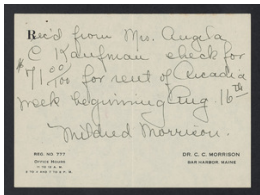 Rec'd from Mrs. Angela
C Kaufman check for
$71 00/100 for rent of Arcadia
week beginning Aug 16th
Mildred Morrison.
REG NO 777
OFFICE HOURS
DR. C. C. MORRISON
BAR HARBOR, MAINE